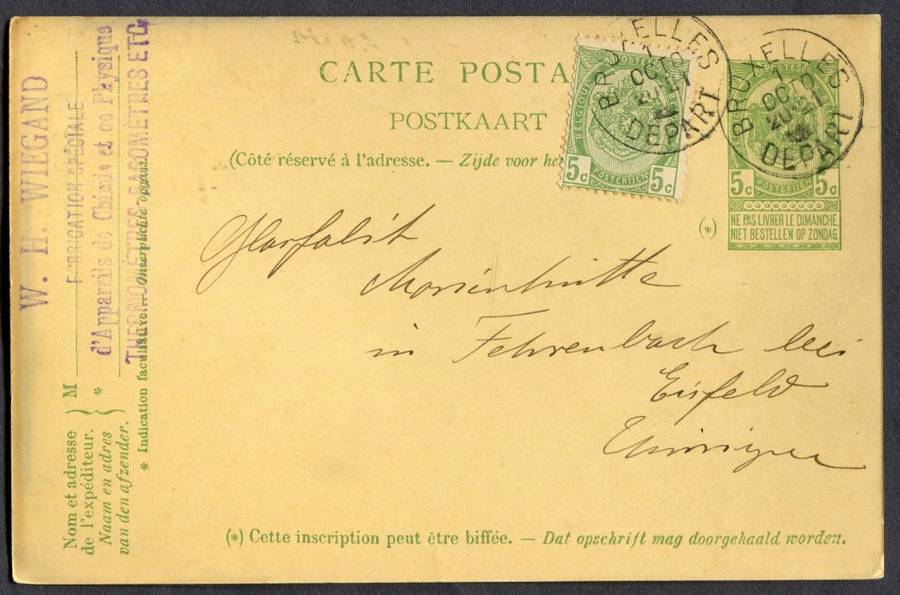 CARTE POSTA
POSTKAART
(Côté réservé à l'adresse. — Zijde voor he
BELGIQUE
POSTERIJEN
5c 5c
BRUXELLES
1
OCTO
20-21
DEPART
BRUXELLES
1
OCTO
20-21
DEPART
5c 5c
POSTERIJEN
(*)
NE PAS LIVRER LE DIMANCHE.
NIET BESTELLEN OP ZONDAG.
Marienhütte
in Fehrenbach bei
Eisfeld
W. H. WIEGAND
FABRICATION SPÉCIALE
d'Appareils de Chimie et de Physique
THERMOMÈTRES-BAROMÈTRES ETC
Nom et adresse
de l'expéditeur.
Naam en adres
van den afzender.
M
*
* Indication facultative. — Onverplichte opgave.
(*) Cette inscription peut être biffée. — Dat opschrift mag doorgehaald worden.